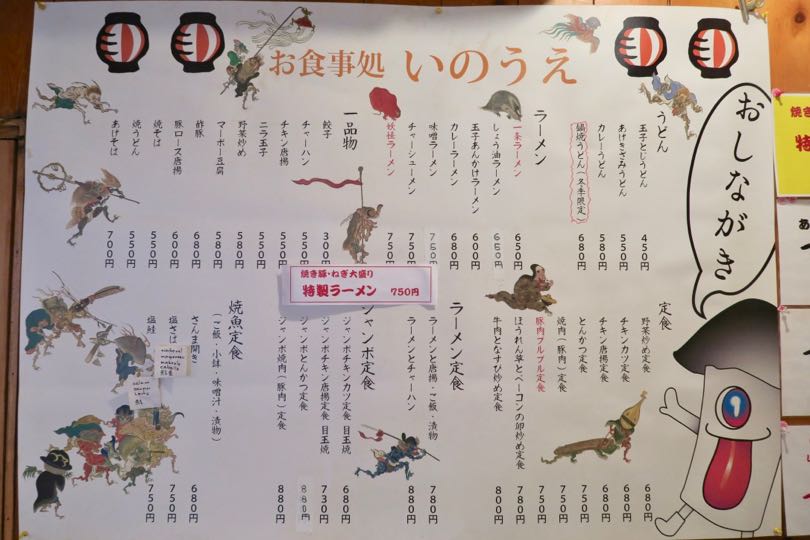 お食事処 いのうえ
おしながき
うどん
玉子とじうどん 450円
あげきざみうどん 550円
カレーうどん 580円
鍋焼うどん(冬季限定) 680円
ラーメン
一条ラーメン 650円
しょう油ラーメン 650円
玉子あんかけラーメン 600円
カレーラーメン 680円
味噌ラーメン 750円
チャーシューメン 750円
妖怪ラーメン 750円
一品物
餃子 300円
チャーハン 550円
チキン唐揚 550円
ニラ玉子 550円
野菜炒め 580円
マーボー豆腐 580円
酢豚 680円
豚ロース唐揚 600円
焼そば 550円
焼うどん 550円
あげそば 700円
焼き豚・ねぎ大盛り
特製ラーメン 750円
定食
野菜炒め定食 680円
チキンカツ定食 680円
チキン唐揚定食 680円
とんかつ定食 750円
焼肉(豚肉)定食 750円
豚肉プルプル定食 750円
ほうれん草とベーコンの卵炒め定食 780円
牛肉となすび炒め定食 800円
ラーメン定食
ラーメンと唐揚・ご飯・漬物 780円
ラーメンとチャーハン 880円
ジャンボ定食
ジャンボチキンカツ定食 目玉焼 680円
ジャンボチキン唐揚定食 目玉焼 730円
ジャンボとんかつ定食 880円
ジャンボ焼肉(豚肉)定食 880円
焼魚定食
(ご飯・小鉢・味噌汁・漬物)
さんま開き 680円
塩さば 750円
塩鮭 750円